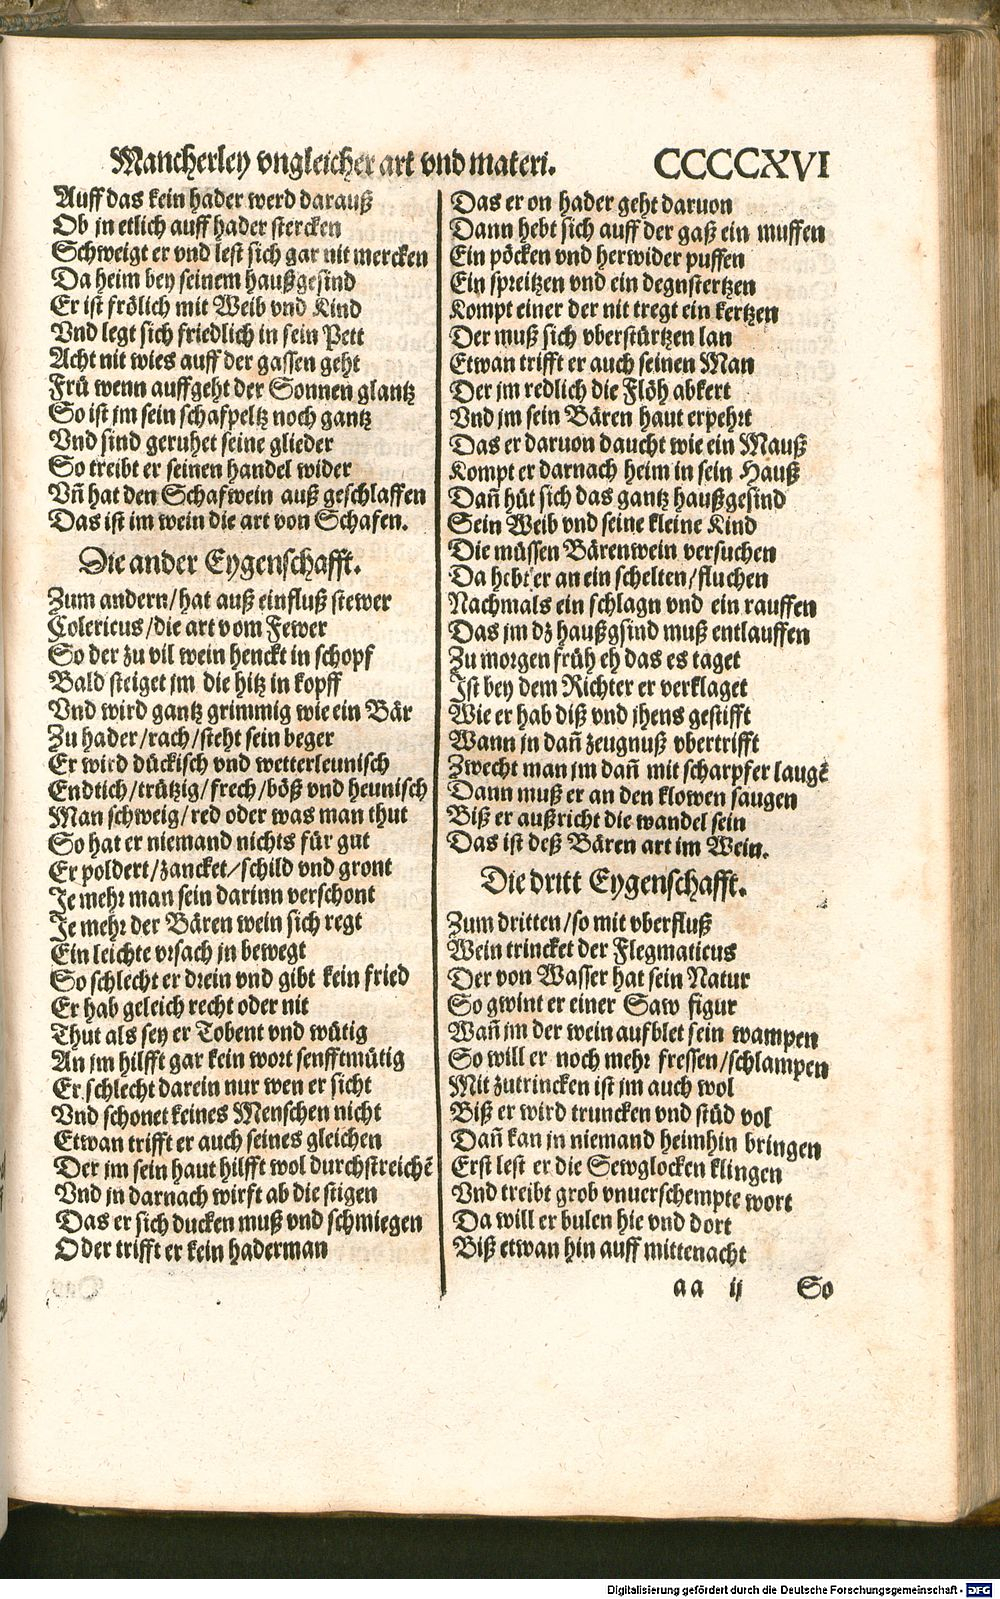 Mancherley vngleicher art vnd materi. CCCCXVI
Auff das kein hader werd darauß
Ob jn etlich auff hader stercken
Schweigt er vnd lest sich gar nit mercken
Da heim bey seinem haußgesind
Er ist frölich mit Weib vnd Kind
Vnd legt sich friedlich in sein Pett
Acht nit wies auff der gassen geht
Frü wenn auffgeht der Sonnen glantz
So ist jm sein schafpeltz noch gantz
Vnd sind geruhet seine glieder
So treibt er seinen handel wider
Vñ hat den Schafwein auß geschlaffen
Das ist im wein die art von Schafen.
Die ander Eygenschafft.
Zum andern/hat auß einfluß stewer
Colericus/die art vom Fewer
So der zu vil wein henckt in schopf
Bald steiget jm die hitz in kopff
Vnd wird gantz grimmig wie ein Bär
Zu hader/rach/steht sein beger
Er wird dückisch vnd wetterleunisch
Endtich/trützig/frech/böß vnd heunisch
Man schweig/red oder was man thut
So hat er niemand nichts für gut
Er poldert/zancket/schild vnd gront
Je mehr man sein darinn verschont
Je mehr der Bären wein sich regt
Ein leichte vrsach jn bewegt
So schlecht er drein vnd gibt kein fried
Er hab geleich recht oder nit
Thut als sey er Tobent vnd wütig
An jm hilfft gar kein wort senfftmütig
Er schlecht darein nur wen er sicht
Vnd schonet keines Menschen nicht
Etwan trifft er auch seines gleichen
Der jm sein haut hilfft wol durchstreichẽ
Vnd jn darnach wirft ab die stigen
Das er sich ducken muß vnd schmiegen
Oder trifft er kein haderman
Das er on hader geht daruon
Dann hebt sich auff der gaß ein muffen
Ein pöcken vnd herwider puffen
Ein spreitzen vnd ein degnstertzen
Kompt einer der nit tregt ein kertzen
Der muß sich vberstürtzen lan
Etwan trifft er auch seinen Man
Der jm redlich die Flöh abkert
Vnd jm sein Bären haut erpehrt
Das er daruon daucht wie ein Mauß
Kompt er darnach heim in sein Hauß
Dañ hüt sich das gantz haußgesind
Sein Weib vnd seine kleine Kind
Die müssen Bärenwein versuchen
Da hebt er an ein schelten/fluchen
Nachmals ein schlagn vnd ein rauffen
Das jm dz haußgsind muß entlauffen
Zu morgen früh eh das es taget
Ist bey dem Richter er verklaget
Wie er hab diß vnd jhens gestifft
Wann jn dañ zeugnuß vbertrifft
Zwecht man jm dañ mit scharpfer laugẽ
Dann muß er an den klowen saugen
Biß er außricht die wandel sein
Das ist deß Bären art im Wein.
Die dritt Eygenschafft.
Zum dritten/so mit vberfluß
Wein trincket der Flegmaticus
Der von Wasser hat sein Natur
So gwint er einer Saw figur
Wañ jm der wein aufblet sein wampen
So will er noch mehr fressen/schlampen
Mit zutrincken ist jm auch wol
Biß er wird truncken vnd stüd vol
Dañ kan jn niemand heimhin bringen
Erst lest er die Sewglocken klingen
Vnd treibt grob vnuerschempte wort
Da will er bulen hie vnd dort
Biß etwan hin auff mittenacht
aa ij So
Digitalisierung gefördert durch die Deutsche Forschungsgemeinschaft - DFG